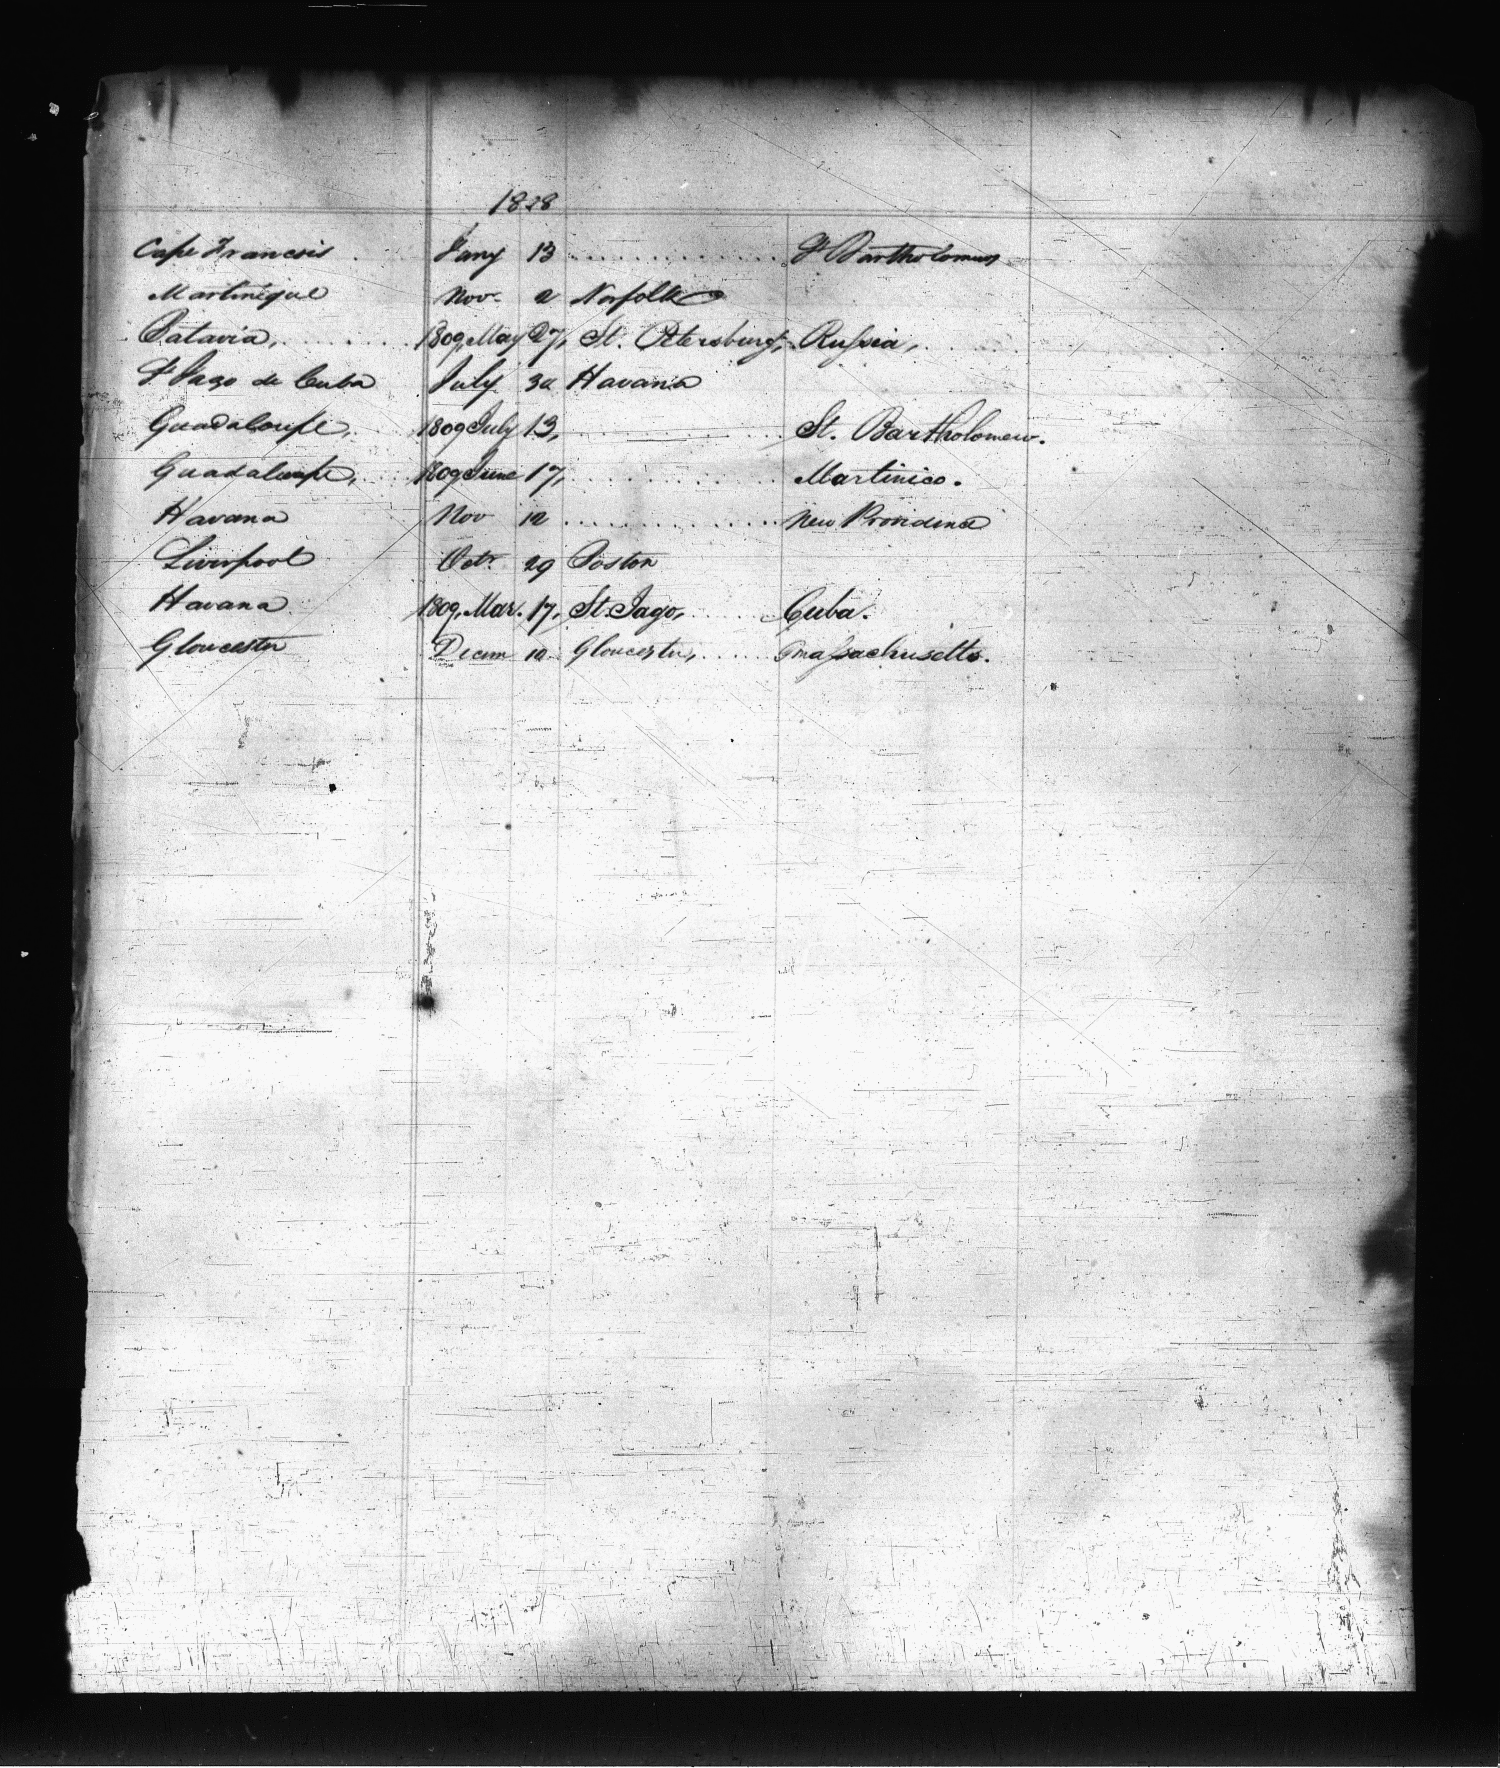 1828
Cape Francois . Jany 13 . . . . . . . . . . . . St Bartholomews
Martinique Nov. 2 Norfolk
Batavia, . . . . . . . 1809, May 27, St. Petersburgh, Russia,
St Jago de Cuba July 30 Havana
Guadaloupe, . . . 1809 July 13, . . . . . . . . . . . . St. Bartholomew.
Guadaloupe, . . . 1809 June 17, . . . . . . . . . . . . Martinico.
Havana Nov 12 . . . . . . . . . . . . New Providence
Liverpool Octr. 29 Boston
Havana 1809, Mar. 17, St. Jago, . . . . . Cuba.
Gloucester Decem 10 Gloucester, . . . . . Massachusetts.